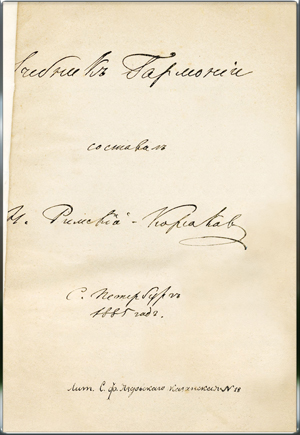 Учебникъ Гармоніи
составилъ
Н. Римскій-Корсаков
С. Петербургъ
1885 годъ.
Лит. С. ф. Казанская № 18